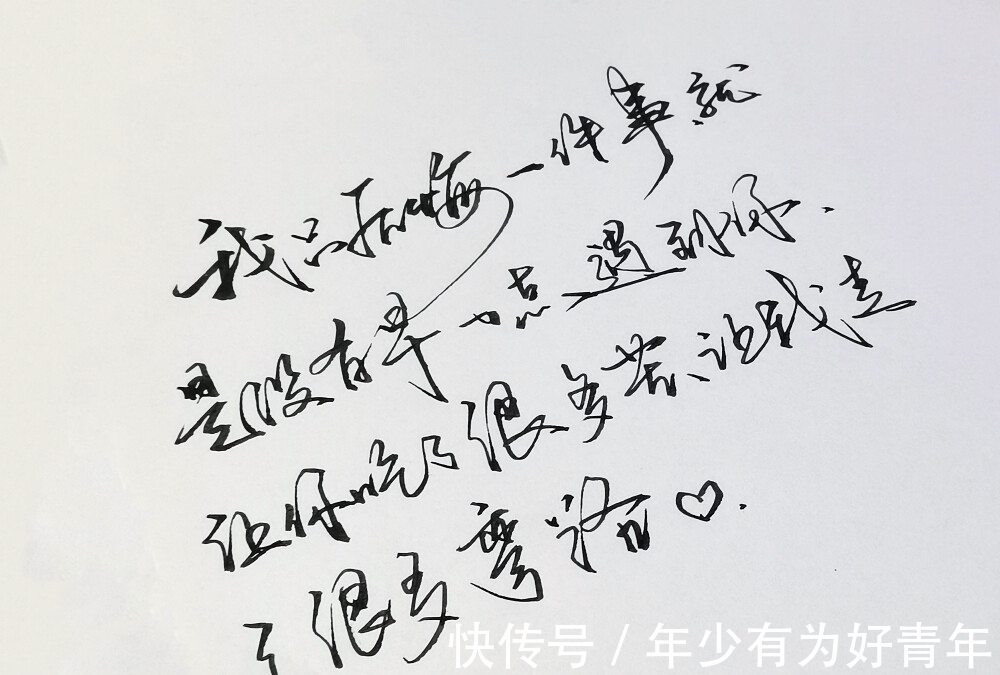 我只后悔一件事就
是没有早一点遇到你.
让你吃了很多苦、让我走
了很多弯路♡.
快传号/年少有为好青年